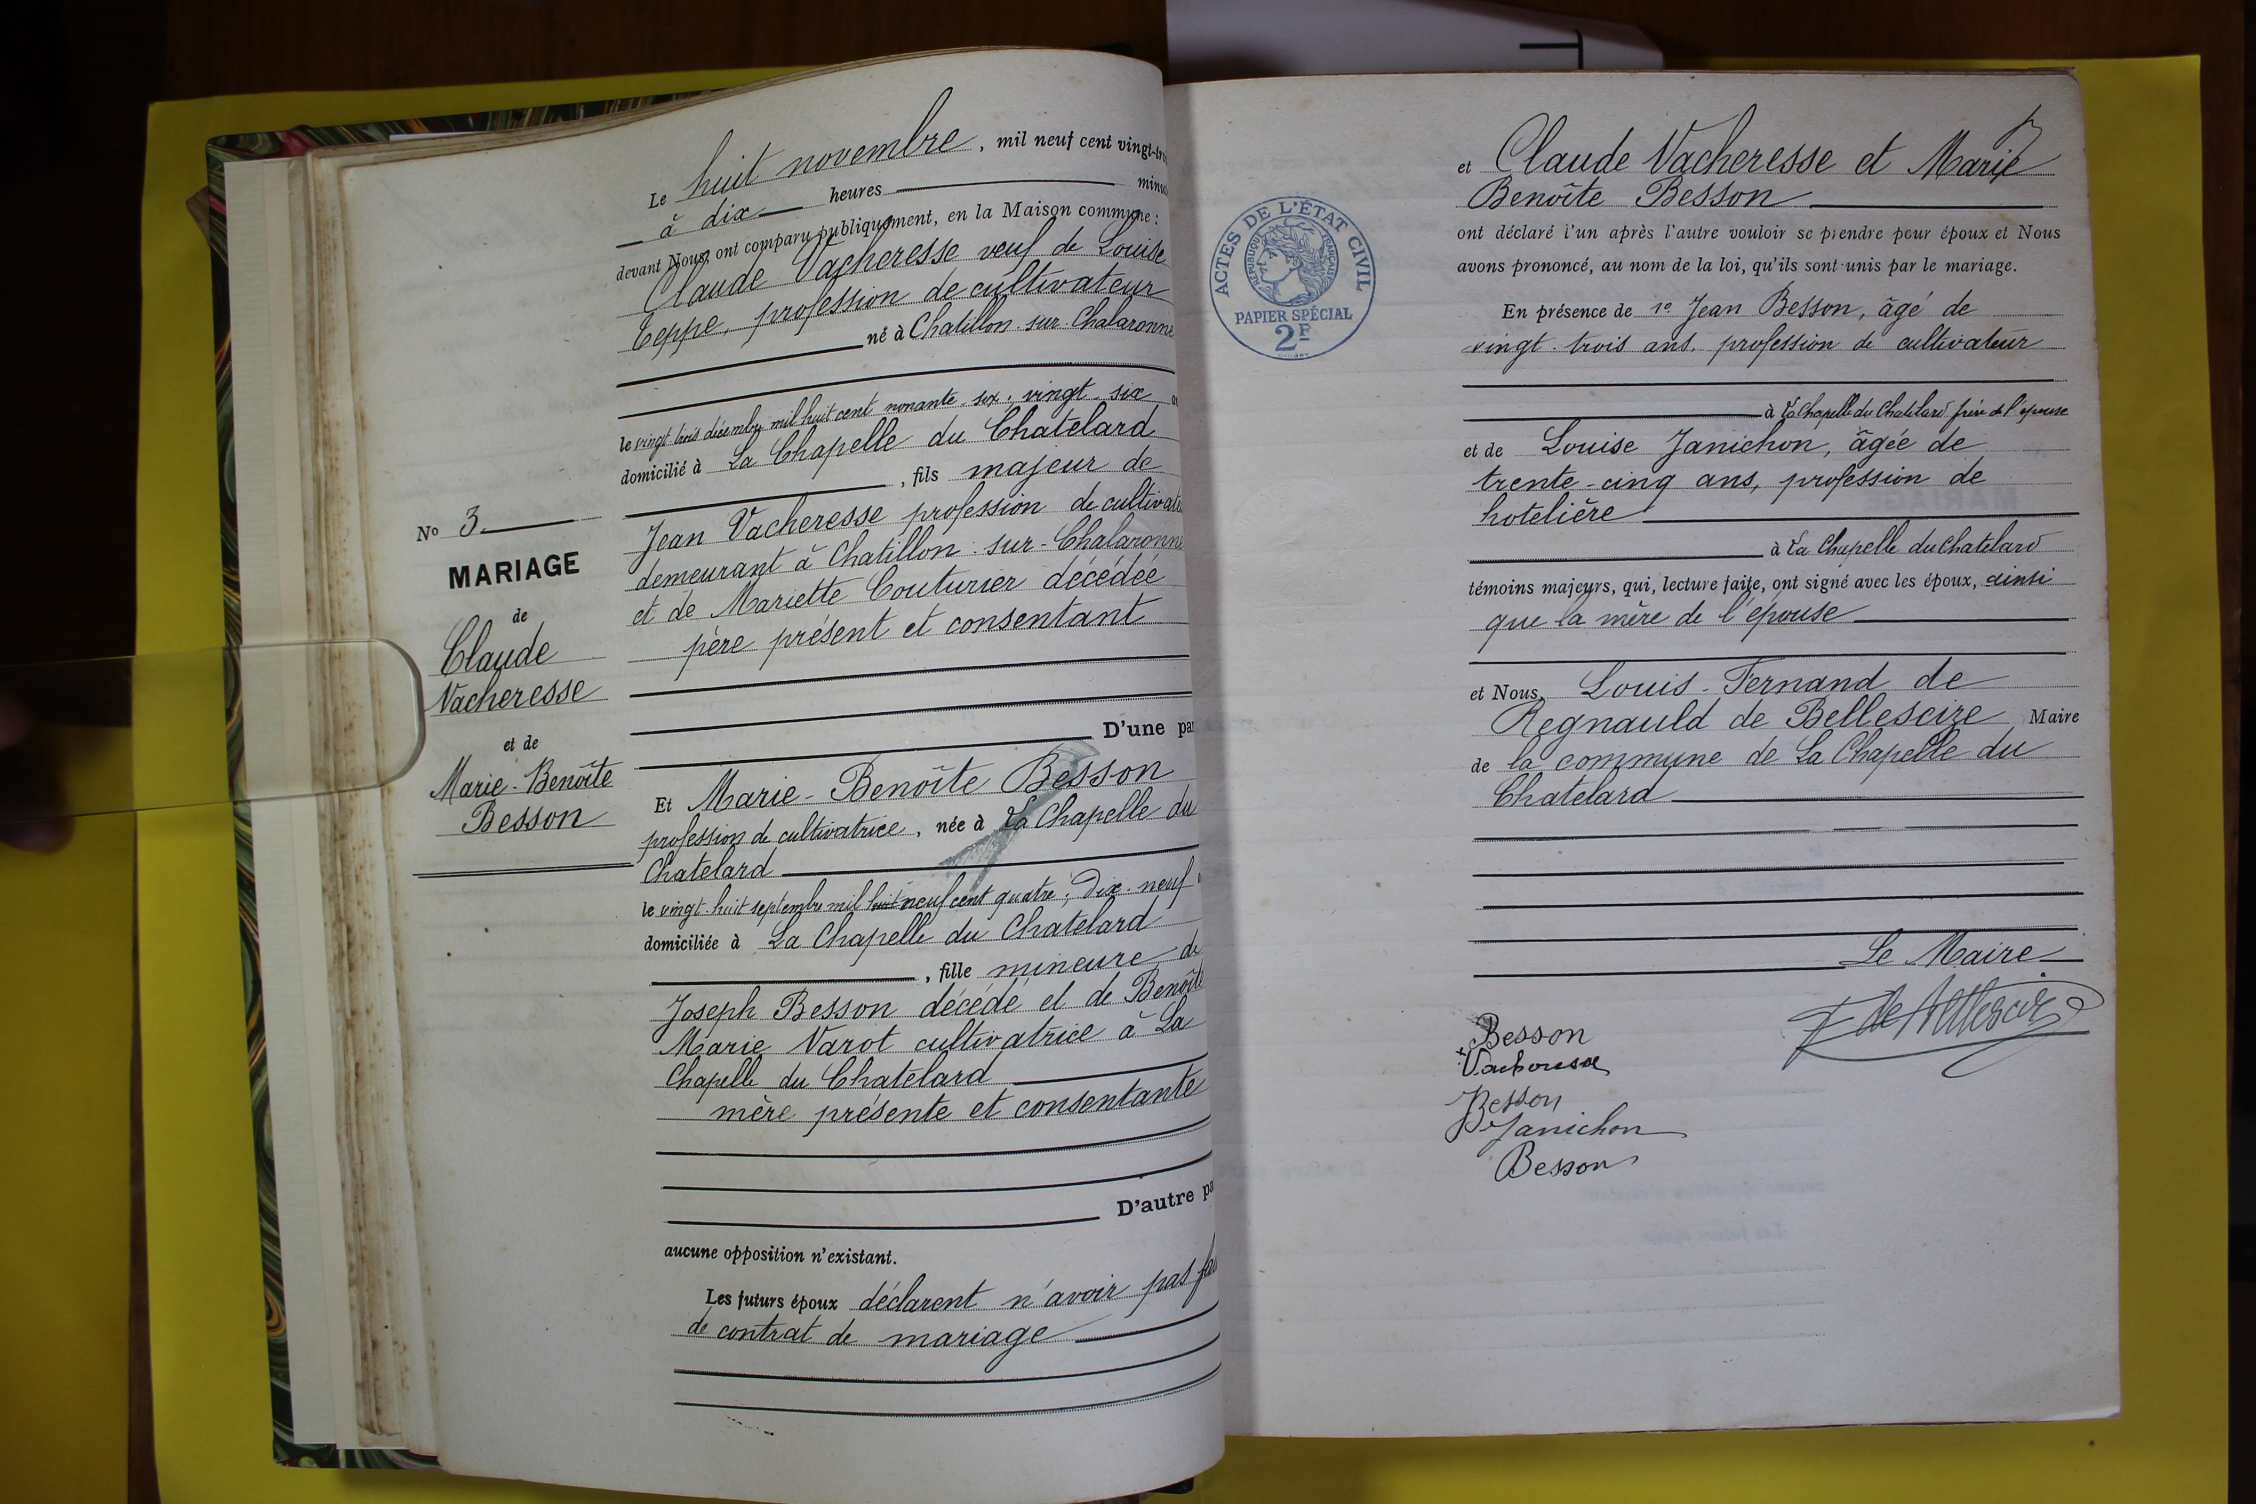 Le huit novembre, mil neuf cent vingt-tro
à dix heures minu
devant Nous, ont comparu publiquement, en la Maison commune :
Claude Vacheresse veuf de Louise
Teppe, profession de cultivateur
né à Chatillon-sur-Chalaronne
le vingt trois décembre mil huit cent nonante-six, vingt-six
domicilié à La Chapelle du Chatelard
, fils majeur de
Jean Vacheresse profession de cultivate
demeurant à Chatillon-sur-Chalaronne
et de Mariette Couturier décédée
père présent et consentant
D'une par
No 3.
MARIAGE
de
Claude
Vacheresse
et de
Marie-Benoîte
Besson
Et Marie-Benoîte Besson
profession de cultivatrice, née à La Chapelle du
Chatelard
le vingt-huit septembre mil huit neuf cent quatre, Dix-neuf
domiciliée à La Chapelle du Chatelard
, fille mineure de
Joseph Besson décédé et de Benoîte
Marie Varot cultivatrice à La
Chapelle du Chatelard
mère présente et consentante
D'autre pa
aucune opposition n'existant.
Les futurs époux déclarent n'avoir pas fai
de contrat de mariage
ACTES DE L'ÉTAT CIVIL
RÉPUBLIQUE FRANÇAISE
PAPIER SPÉCIAL
2F
et Claude Vacheresse et Marie
Benoîte Besson
ont déclaré l'un après l'autre vouloir se prendre pour époux et Nous
avons prononcé, au nom de la loi, qu'ils sont unis par le mariage.
En présence de 1º Jean Besson, âgé de
vingt-trois ans, profession de cultivateur
à La Chapelle du Chatelard, frère de l'épouse
et de Louise Janichon, âgée de
trente-cinq ans, profession de
hotelière
à La Chapelle du Chatelard
témoins majeurs, qui, lecture faite, ont signé avec les époux, ainsi
que la mère de l'épouse
et Nous, Louis-Fernand de
Regnauld de Bellescize Maire
de la commune de La Chapelle du
Chatelard
Le Maire
F de Bellescize
Besson
Vacheresse
Besson
Janichon
Besson